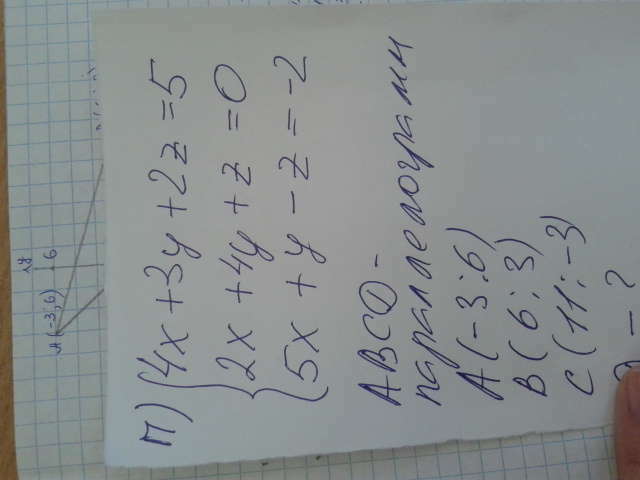 П) { 4x + 3y + 2z = 5
2x + 4y + z = 0
5x + y - z = -2
ABCD -
параллелограмм
A(-3; 6)
B(6; 3)
C(11; -3)
- ?
A(-3;6)
y
6